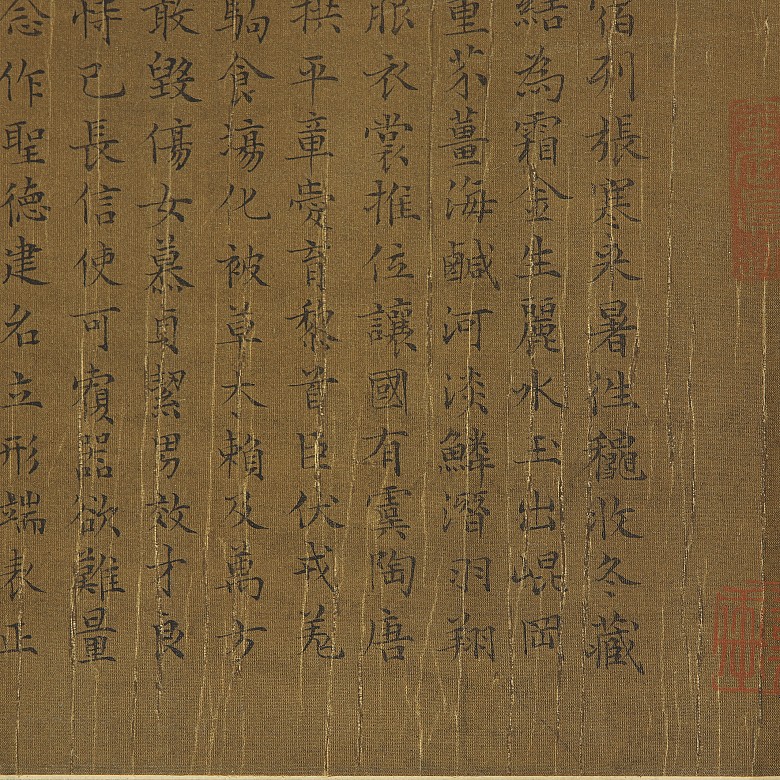 宿列張寒来暑往穐收冬藏
結為霜金生麗水玉出崐岡
重芥薑海鹹河淡鱗潛羽翔
服衣裳推位讓國有虞陶唐
拱平章愛育黎首臣伏戎羌
駒食場化被草木賴及萬方
敢毀傷女慕貞絜男效才良
恃己長信使可覆器欲難量
念作聖德建名立形端表正